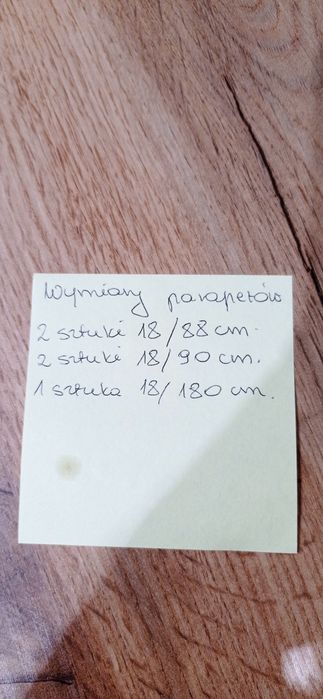 Wymiary parapetów
2 sztuki 18/88 cm.
2 sztuki 18/90 cm.
1 sztuka 18/180 cm.